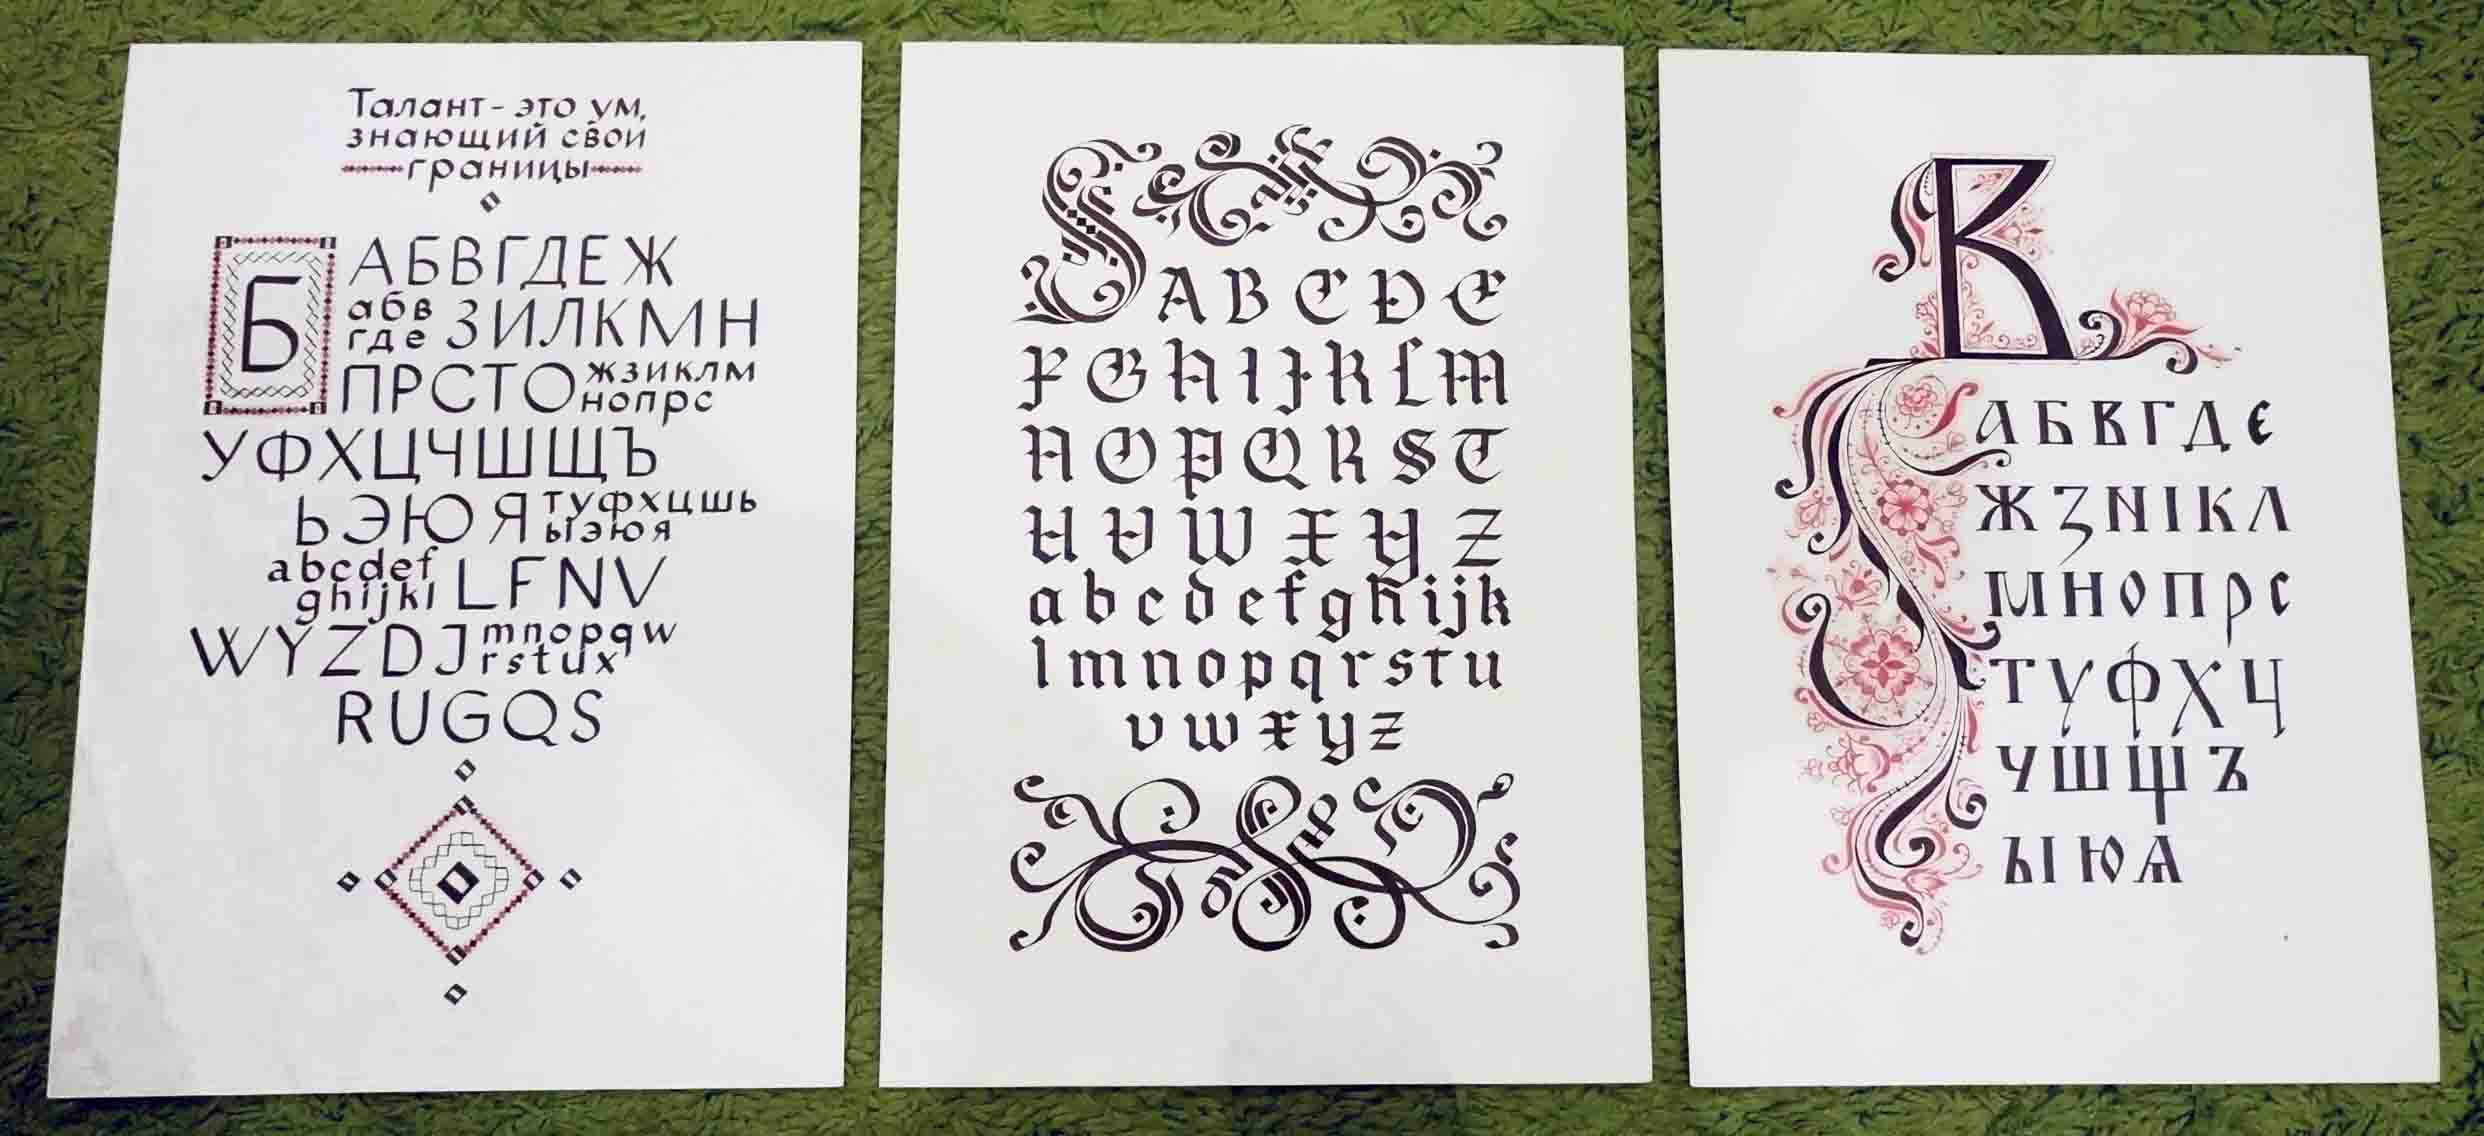 Талант - это ум,
знающий свои
границы
Б
АБВГДЕЖ
абв
где
ЗИЛКМН
ПРСТО
жзиклм
нопрс
УФХЦЧШЩЪ
ЬЭЮЯ
туфхцшь
ыэюя
abcdef
ghijkl
LFNV
WYZDJ
mnopqw
rstux
RUGQS
ABCDE
FGHIJKLM
NOPQRST
UVWXYZ
abcdefghijk
lmnopqrstu
vwxyz
В
АБВГДЕ
ЖЗNIКЛ
МНОПРС
ТУФХЦ
ЧШЩЪ
ЫЮѦ